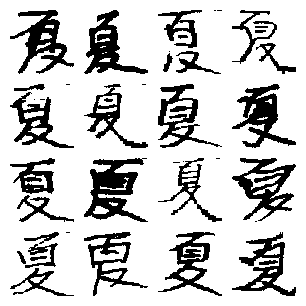 夏夏夏夏
夏夏夏夏
夏夏夏夏
夏夏夏夏